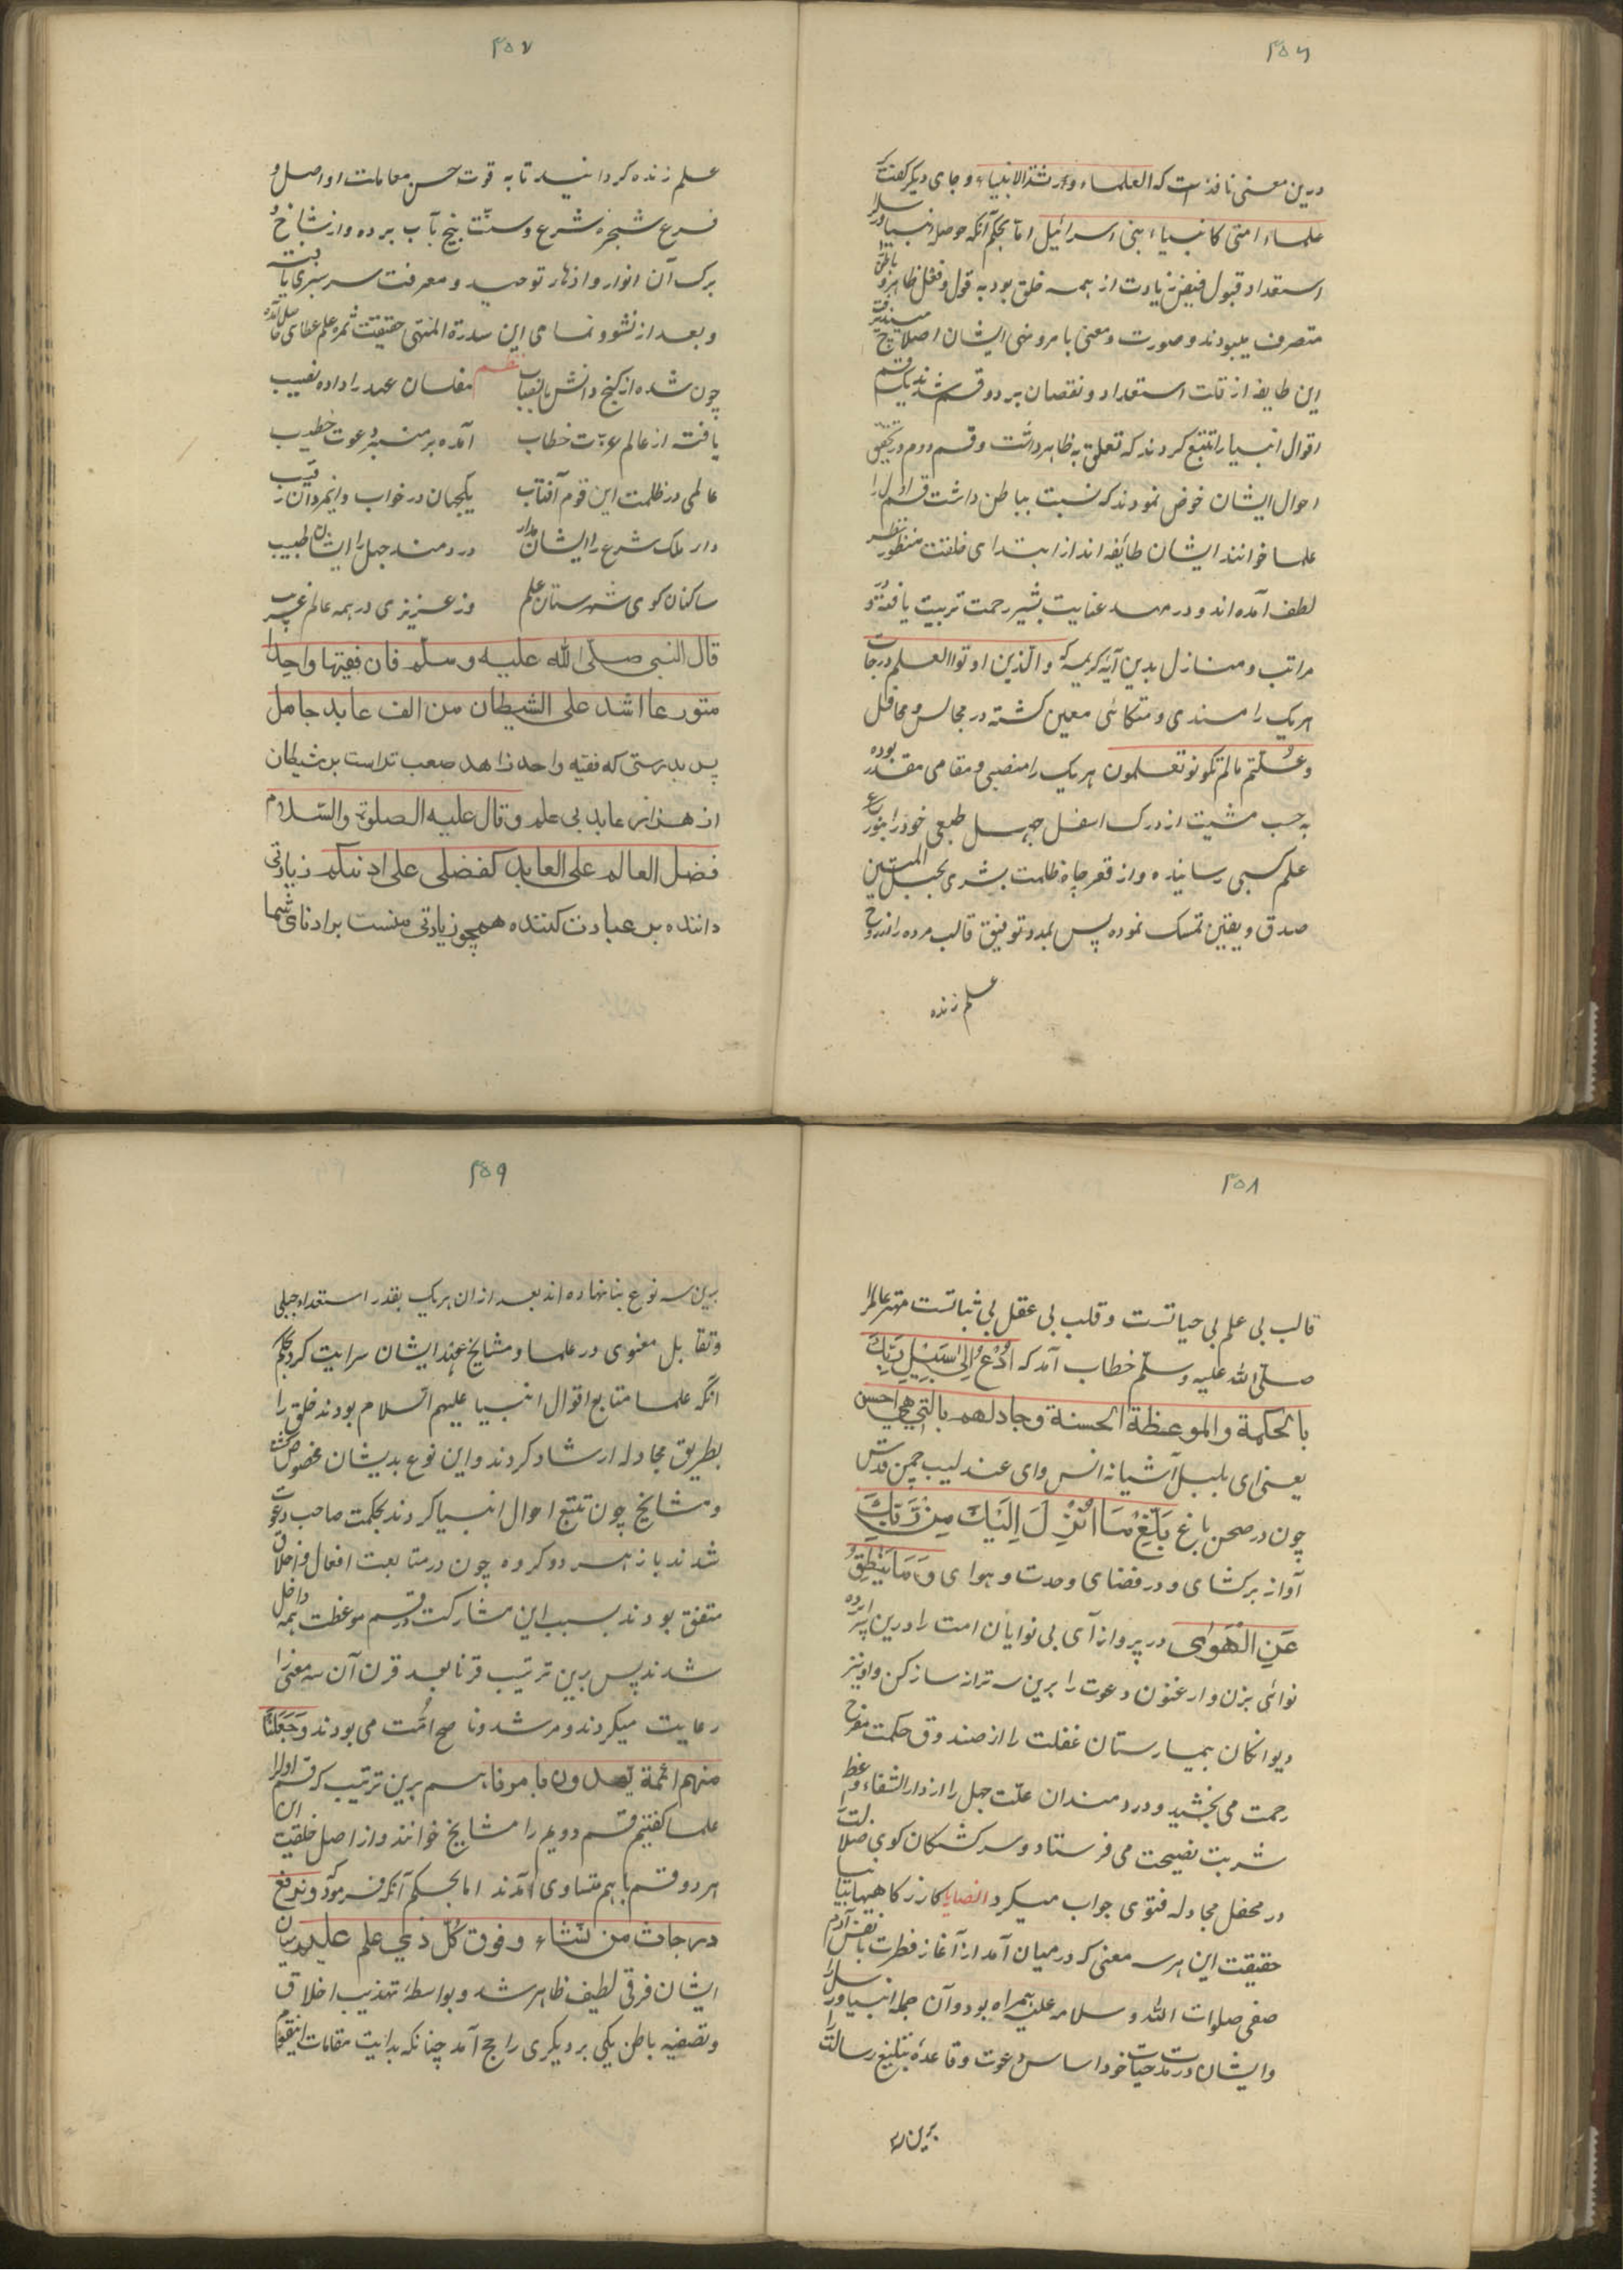 ۴۵۶
درین معنی نافذست که العلماء ورثة الانبیاء و جای دیگر گفت که
علماء امتی کانبیاء بنی اسرائیل اما بحکم آنکه حوصله انبیا و رسل را
استعداد قبول فیض زیادت از همه خلق بود به قول و فعل ظاهر و باطن
متصرف میبودند و صورت و معنی با مر و نهی ایشان اصلاح می‌پذیرفت
این طایفه از قلت استعداد و نقصان بر دو قسم شدند یک قسم
اقوال انبیا را تتبع کردند که تعلق به ظاهر داشت و قسم دوم در تحقیق
احوال ایشان خوض نمودند که نسبت بباطن داشت قسم اول را
علما خوانند ایشان طائفه اند از ابتدای خلقت منظور نظر
لطف آمده اند و در مهد عنایت بشیر رحمت تربیت یافته و در
مراتب و منازل بدین آیه کریمه که والذین اوتوا العلم درجات
هریک را مسندی و متکائی معین گشته در مجالس و محافل
و علمتم مالم تکونو تعلمون هریک را منصبی و مقامی مقدر بوده
به حسب مشیت از درک اسفل جهل طبعی خود را بنور
علم کسبی رسانیده و از قعر چاه ظلمت بشری بحبل المتین
صدق و یقین تمسک نموده پس بمدد توفیق قالب مرده را بروح
علم زنده
۴۵۷
علم زنده گردانید تا به قوت حسن معاملت او اصل و
فرع شجره شرع و سنت بیخ بآب برده و از شاخ و
برگ آن انوار و ازهار توحید و معرفت سرسبزی یافته
و بعد از نشو و نمای این سدرة المنتهی حقیقت ثمره علم عطای حاصل آمده
نظم
چون شده از گنج دانش با نصاب مفلسان عهد را داده نصیب
یافته از عالم عزت خطاب آمده بر منبر دعوت خطیب
عالمی در ظلمت این قوم آفتاب یکجهان در خواب و اینمردان رقیب
دار ملک شرع را ایشان مدار دردمند جهل را ایشان طبیب
ساکنان کوی شهرستان علم وز عزیزی در همه عالم غریب
قال النبی صلی الله علیه وسلم فان فقیها واحدا
متورعا اشد علی الشیطان من الف عابد جاهل
پس بدرستی که فقیه واحد زاهد صعب تراست بر شیطان
از هزار عابد بی علم و قال علیه الصلوة والسلام
فضل العالم علی العابد کفضلی علی ادنیکم زیادتی
داننده بر عبادت کننده همچو زیادتی منست بر ادنای شما
۴۵۸
قالب بی علم بی حیاتست و قلب بی عقل بی ثباتست مهتر عالم را
صلی الله علیه وسلم خطاب آمد که اُدْعُ اِلیٰ سَبِیْلِ رَبِّكَ
بالحکمة والموعظة الحسنة وجادلهم بالتی هی احسن
یعنی ای بلبل آشیانه انس و ای عندلیب چمن قدس
چون در صحن باغ بَلِّغْ مَا اُنْزِلَ اِلَیْكَ مِنْ رَبِّكَ
آواز برکشای و در فضای وحدت و هوای وَمَا یَنْطِقُ
عَنِ الْهَوٰی در پرواز آی بی نوایان امت را درین پرده
نوائی بزن و ارغنون دعوت را برین سه ترانه ساز کن و او نیز
دیوانگان بیمارستان غفلت را از صندوق حکمت مفرح
رحمت می بخشید و دردمندان علت جهل را از دارالشفاء وعظ
شربت نصیحت می فرستاد و سرگشتگان کوی ضلالت را
در محفل مجادله فتوی جواب میکرد
حقیقت این هر سه معنی که در میان آمد از آغاز فطرت با نفس آدم
صفی صلوات الله و سلامه علیه همراه بود و آن جمله انبیا و رسل را
و ایشان در مدت حیات خود اساس دعوت و قاعدهٔ تبلیغ رسالت را
برین سه
۴۵۹
برین سه نوع بنا نهاده اند بعد از ان هریک بقدر استعداد جبلی
و تقابل معنوی در علما و مشایخ عهد ایشان سرایت کرد بحکم
انکه علما متابع اقوال انبیا علیهم السلام بودند خلق را
بطریق مجادله ارشاد کردند و این نوع بدیشان مخصوص گشت
و مشایخ چون تتبع احوال انبیا کردند بحکمت صاحب دعوت
شدند باز هر دو گروه چون در متابعت افعال و اخلاق
متفق بودند بسبب این مشارکت در قسم موعظت همه داخل
شدند پس برین ترتیب قرنا بعد قرن آن سه معنی را
رعایت میکردند و مرشد و ناصح امت می بودند وَجَعَلْنَا
منهم ائمة یهدون بامرنا هم برین ترتیب که قسم اول را
علما گفتیم قسم دویم را مشایخ خوانند و از اصل خلقت این
هر دو قسم باهم متساوی آمدند اما بحکم آنکه فرمود و نرفع
درجات من نشاء و فوق کل ذی علم علیم میان
ایشان فرقی لطیف ظاهر شد و بواسطهٔ تهذیب اخلاق
و تصفیه باطن یکی بر دیگری راجح آمد چنانکه بدایت مقامات